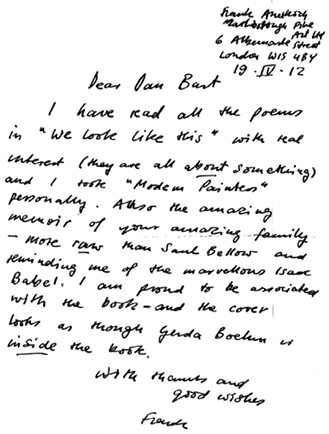 Frank Auerbach
Marlborough Fine
Art Ltd
6 Albemarle Street
London W1S 4BY
19. IV. 12
Dear Dan Burt
I have read all the poems
in "We Look Like This" with real
interest (they are all about something)
and I took "Modern Painters"
personally. Also the amazing
memoir of your amazing family
– more raw than Saul Bellow and
reminding me of the marvellous Isaac
Babel. I am proud to be associated
with the book – and the cover
looks as though Gerda Boehm is
inside the book.
With thanks and
good wishes
Frank